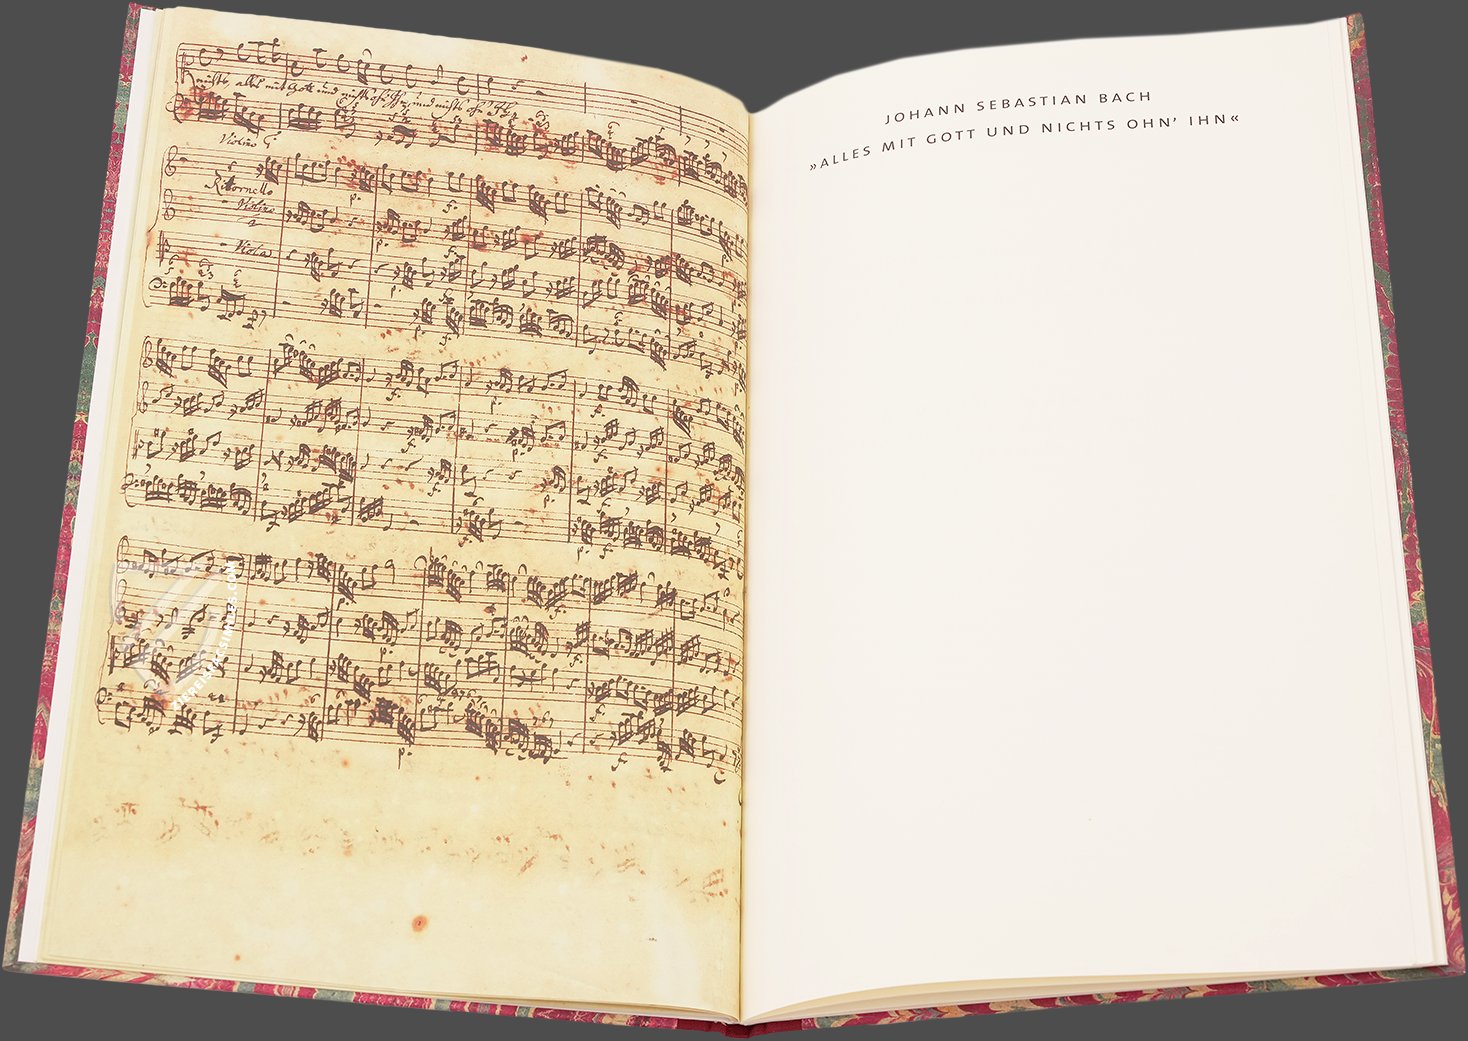 nichts, alles mit Gott und nichts ohn' Ihn, und nichts ohn' Ihn
Violino 1
Ritornello
Violino
2
Viola
JOHANN SEBASTIAN BACH
»ALLES MIT GOTT UND NICHTS OHN’ IHN«